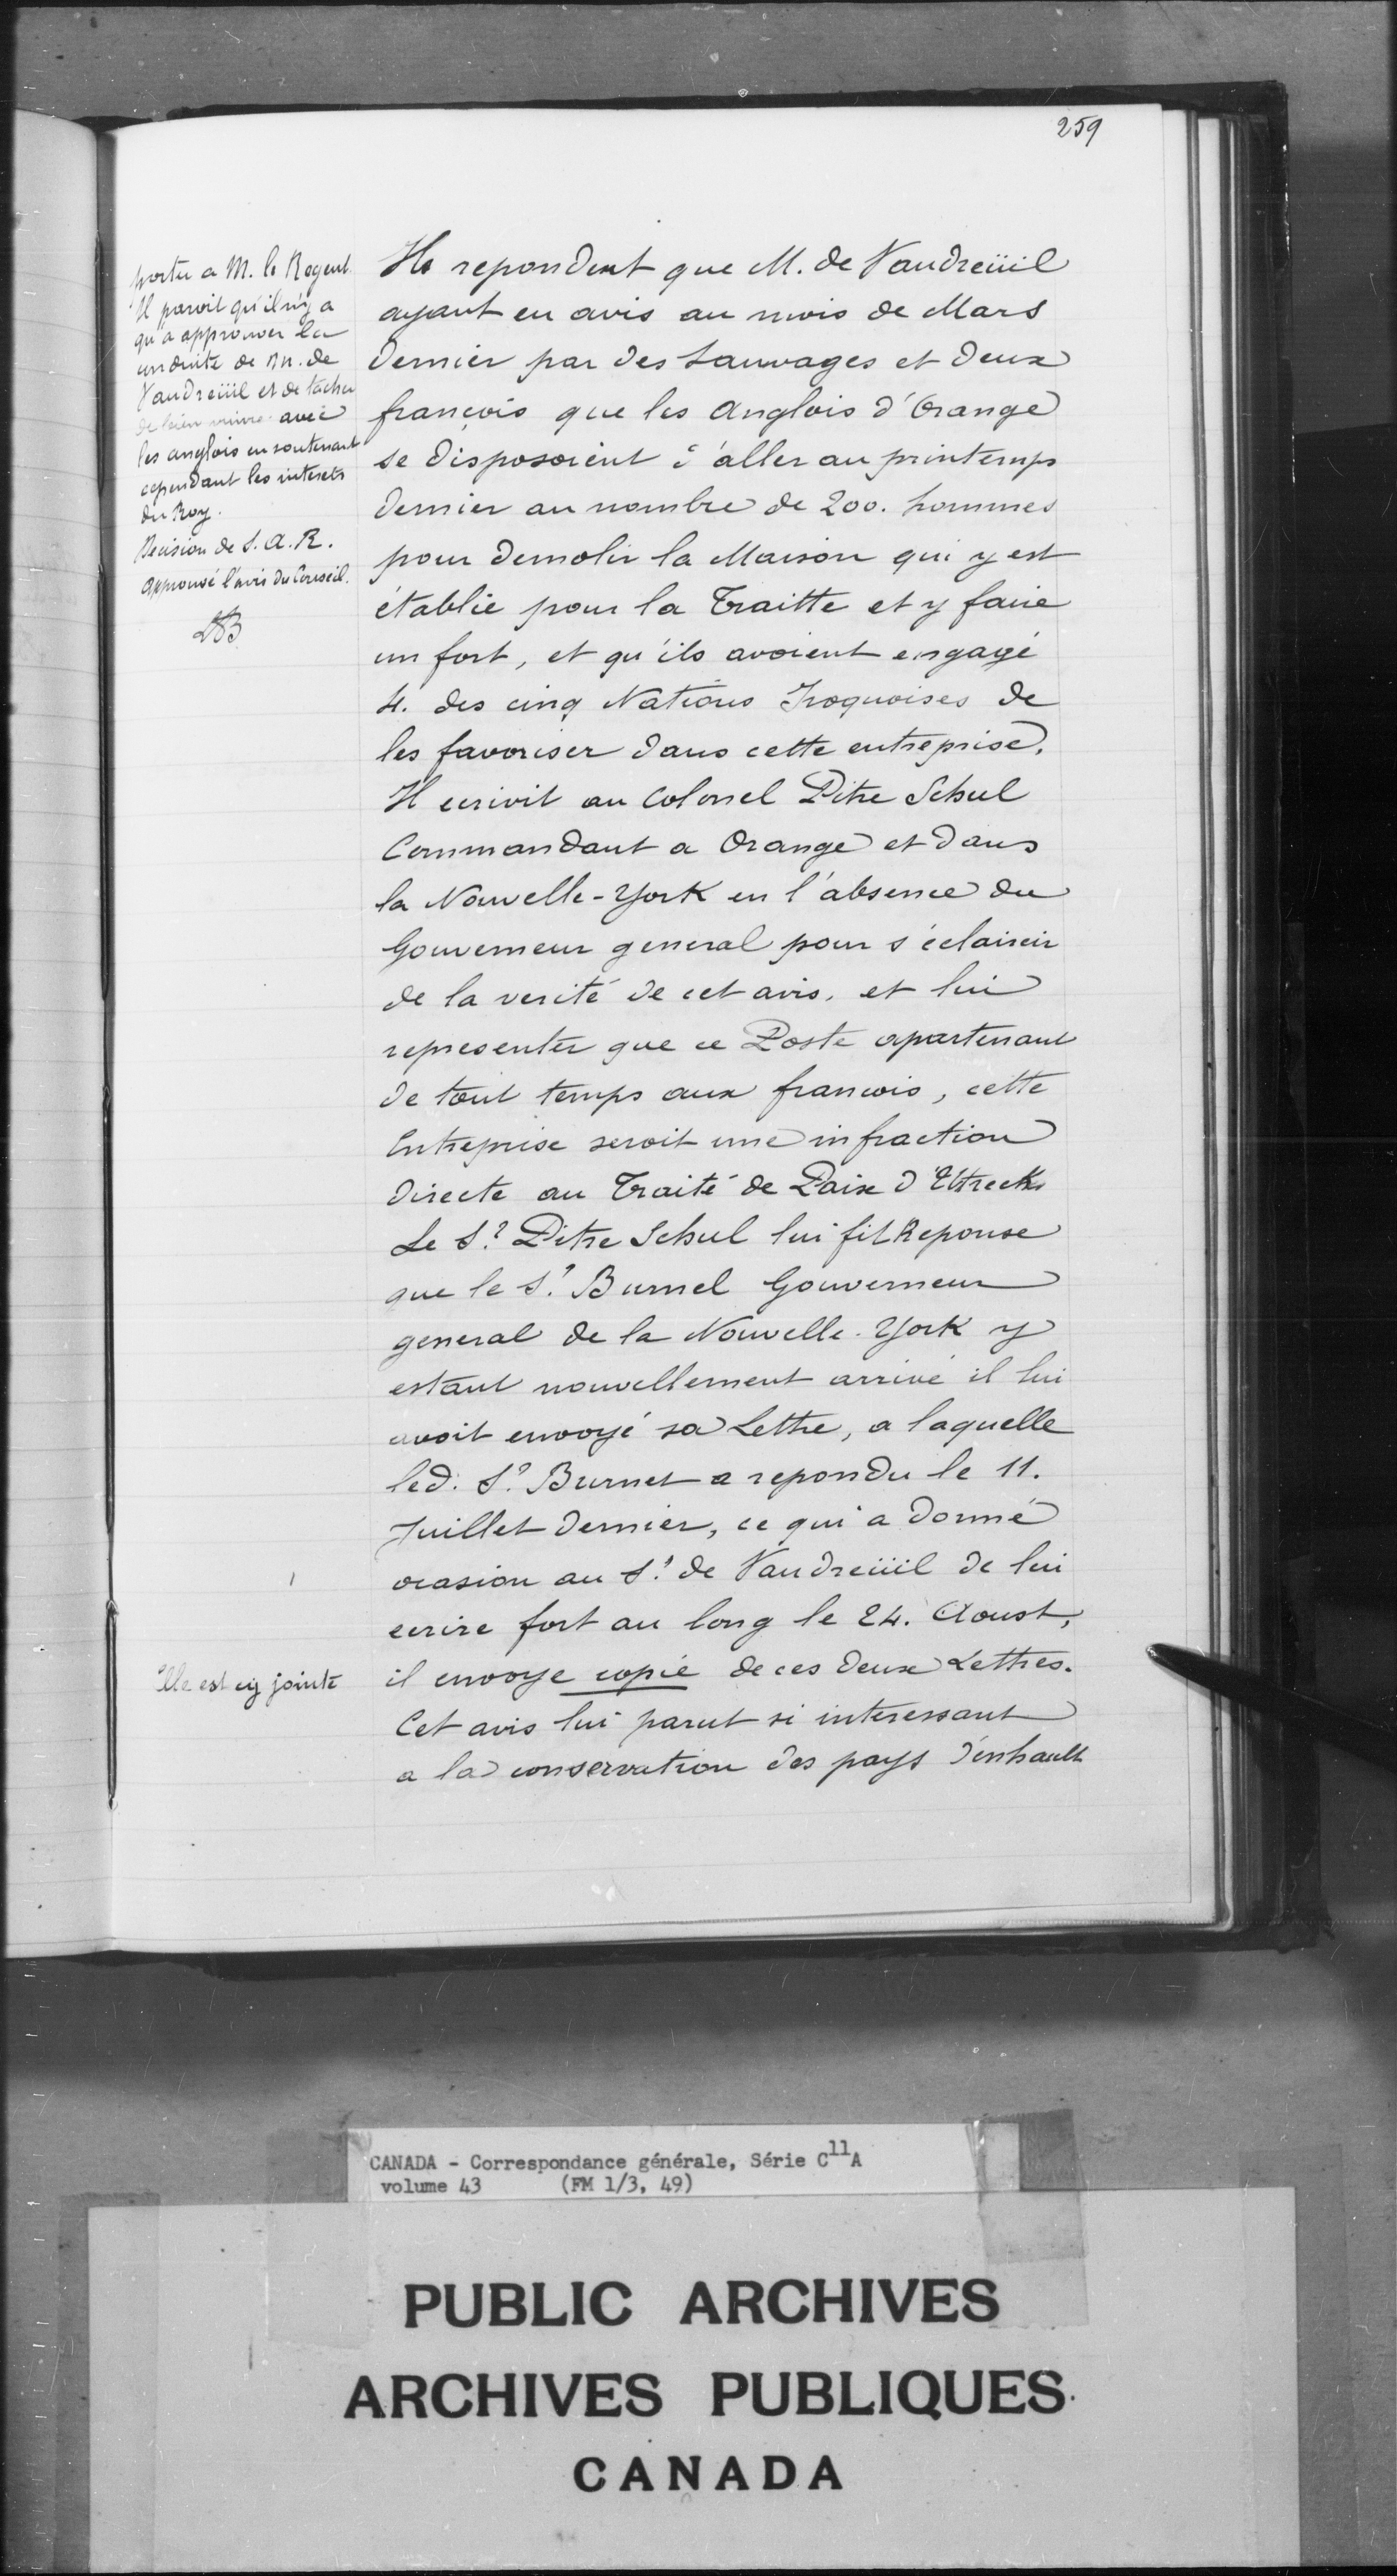 259
porter a M. le Regent.
Il paroit qu'il n'y a
qu'a approuver la
conduite de M. de
Vaudreüil et de tacher
de bien vivre avec
les anglois en soutenant
cependant les interets
du Roy.
Decision de S. A. R.
approuvé l'avis du Conseil.
LB
Ils repondent que M. de Vaudreüil
ayant eu avis au mois de Mars
dernier par des Sauvages et deux
françois que les Anglois d'Orange
se disposoient à aller au printemps
dernier au nombre de 200. hommes
pour demolir la Maison qui y est
établie pour la Traitte et y faire
un fort, et qu'ils avoient engagé
4. des cinq Nations Iroquoises de
les favoriser dans cette entreprise.
Il ecrivit au Colonel Pitre Schul
Commandant a Orange et dans
la Nouvelle-York en l'absence du
Gouverneur general pour s'éclaircir
de la verité de cet avis, et lui
representer que ce Poste apartenant
de tout temps aux francois, cette
Entreprise seroit une infraction
directe au Traité de Paix d'Utreck
Le Sr. Pitre Schul lui fit Reponse
que le Sr. Burnel Gouverneur
general de la Nouvelle-York y
estant nouvellement arrivé il lui
avoit envoyé sa Lettre, a laquelle
led. Sr. Burnet a repondu le 11.
Juillet dernier, ce qui a donné
ocasion au Sr. de Vaudreüil de lui
ecrire fort au long le 24. Aoust,
Elle est cy jointe
il envoye copie de ces deux Lettres.
Cet avis lui parut si interessant
a la conservation des pays d'enhault
CANADA - Correspondance générale, Série C11A
volume 43 (FM 1/3, 49)
PUBLIC ARCHIVES
ARCHIVES PUBLIQUES
CANADA